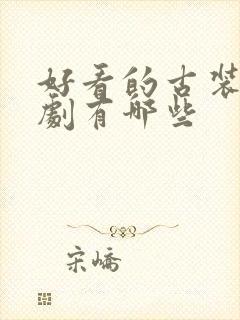 好看的古装
劇有哪些
宋嶠